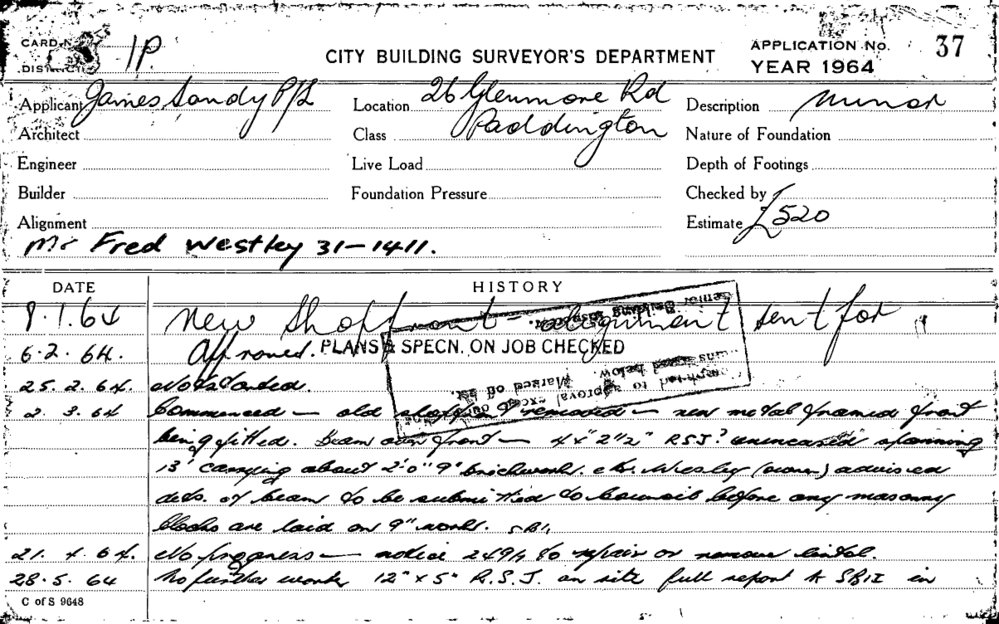 CARD No. 1P
DISTRICT
CITY BUILDING SURVEYOR'S DEPARTMENT
APPLICATION No. 37
YEAR 1964
Applicant James Sandy P/L
Location 26 Glenmore Rd Paddington
Description Minor
Architect
Class
Nature of Foundation
Engineer
Live Load
Depth of Footings
Builder
Foundation Pressure
Checked by
Alignment
Estimate £520
Mr Fred Westley 31-1411.
DATE HISTORY
8.1.64 New Shopfront - alignment sent for
6.2.64. Approved. PLANS & SPECN. ON JOB CHECKED
Senior Building
approval except
Marked off
below
25.2.64. Not started.
2.3.64 Commenced - old removed - new metal framed front
being fitted. Beam over front - 4" x 2½" RSJ? unencased spanning
13' carrying about 2'0" 9" brickwork. Mr. Wesley (owner) advised
dets. of beam to be submitted to Council before any masonry
blocks are laid on 9" work. SBI,
21.4.64. No progress - notice 249 to repair or remove lintel.
28.5.64 No further work 12" x 5" R.S.J. on site full report to SBI in
C of S 9648